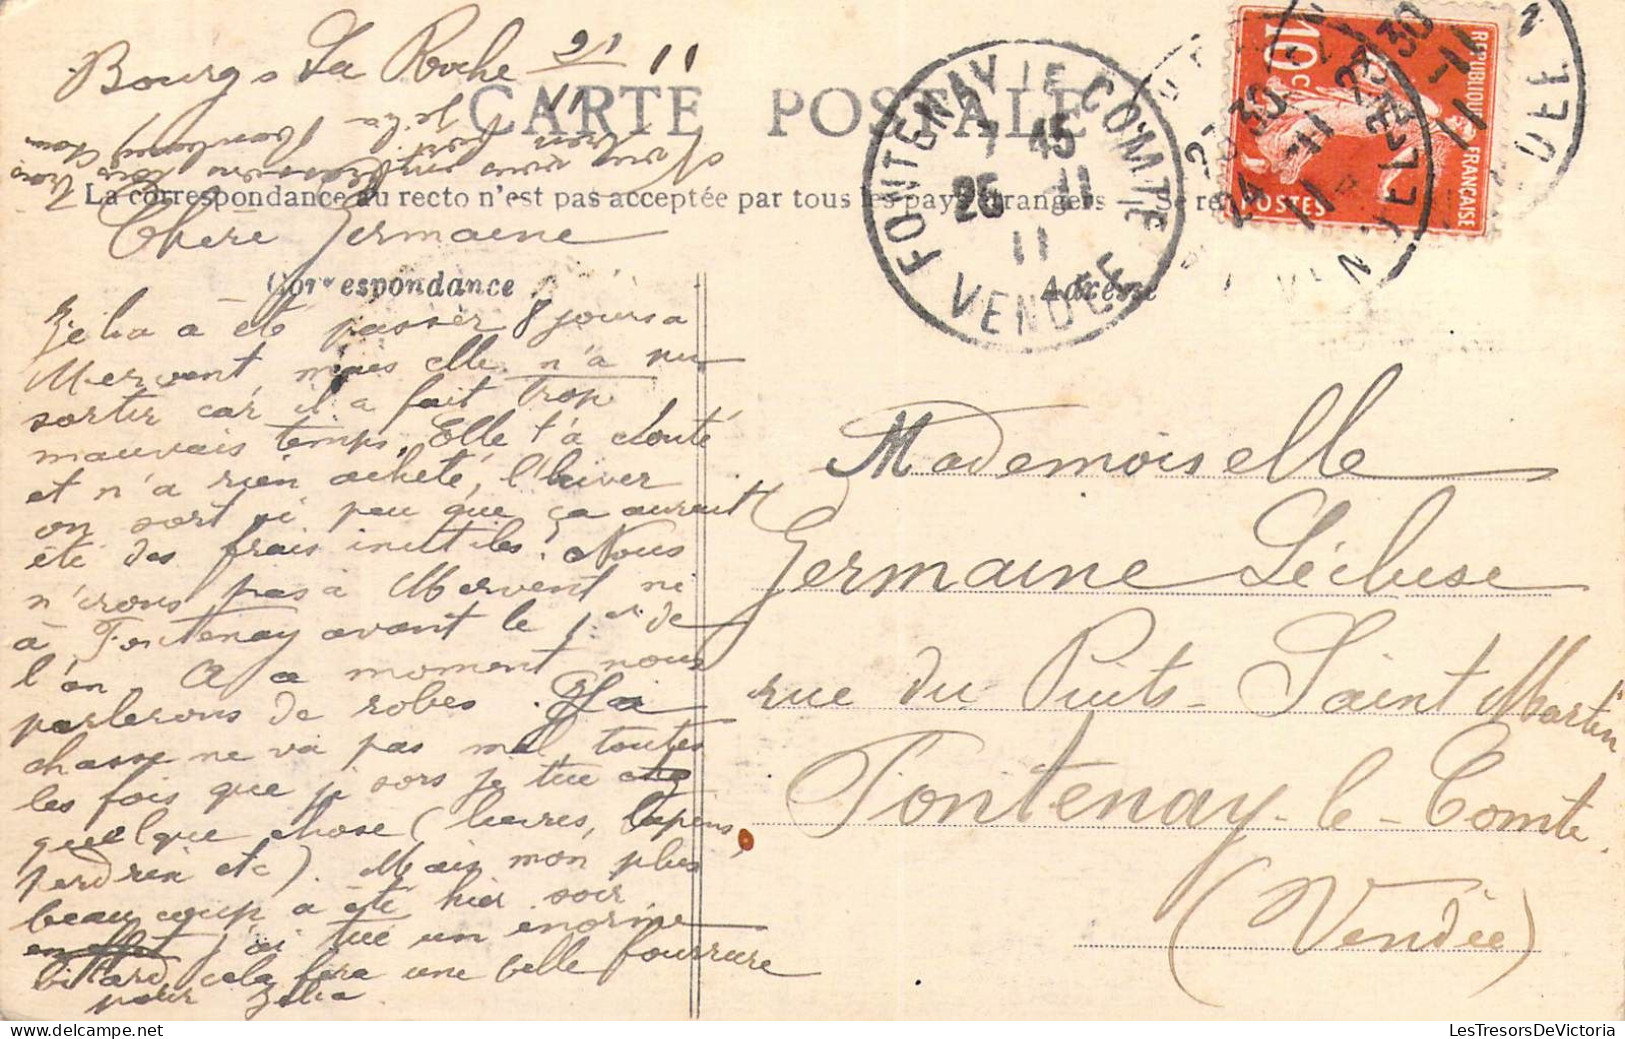 Bourg s La Roche 21 11
11
CARTE POSTALE
La correspondance au recto n'est pas acceptée par tous les pays étrangers — Se re
Chère Germaine
Correspondance
Adresse
Zélia a été passer 8 jours a
Mervent, mais elle n'a pu
sortir car il a fait trop
mauvais temps. Elle t'a
et n'a rien acheté, l'hiver
on sort si peu que ça aurait
été des frais inutiles. Nous
n'irons pas à Mervent ni
à Fontenay avant le 1er de
l'an. A ce moment nous
parlerons de robes. La
chasse ne va pas mal, toutes
les fois que je sors je tue
quelque chose (lièvres, lapins,
perdrix etc). Mais mon plus
beau coup a été hier soir
en effet j'ai tué un énorme
bitard, cela fera une belle fourrure
pour Zélia.
Mademoiselle
Germaine Lécluse
rue du Puits-Saint Martin
Fontenay-le-Comte.
(Vendée)
FONTENAY LE COMTE
7 45
25 11
11
VENDÉE
10c
REPUBLIQUE FRANÇAISE
POSTES
LesTresorsDeVictoria